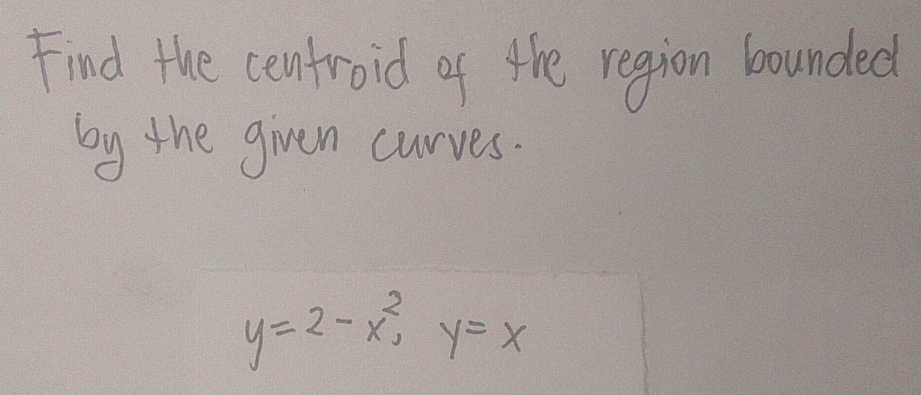 Find the centroid of the region bounded
by the given curves.
y = 2 - x², y = x